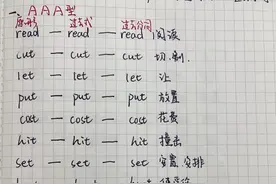 一、AAA型
原形 过去式 过去分词
read — read — read 阅读
cut — cut — cut 切、割
let — let — let 让
put — put — put 放置
cost — cost — cost 花费
hit — hit — hit 撞击
set — set — set 安置 安排